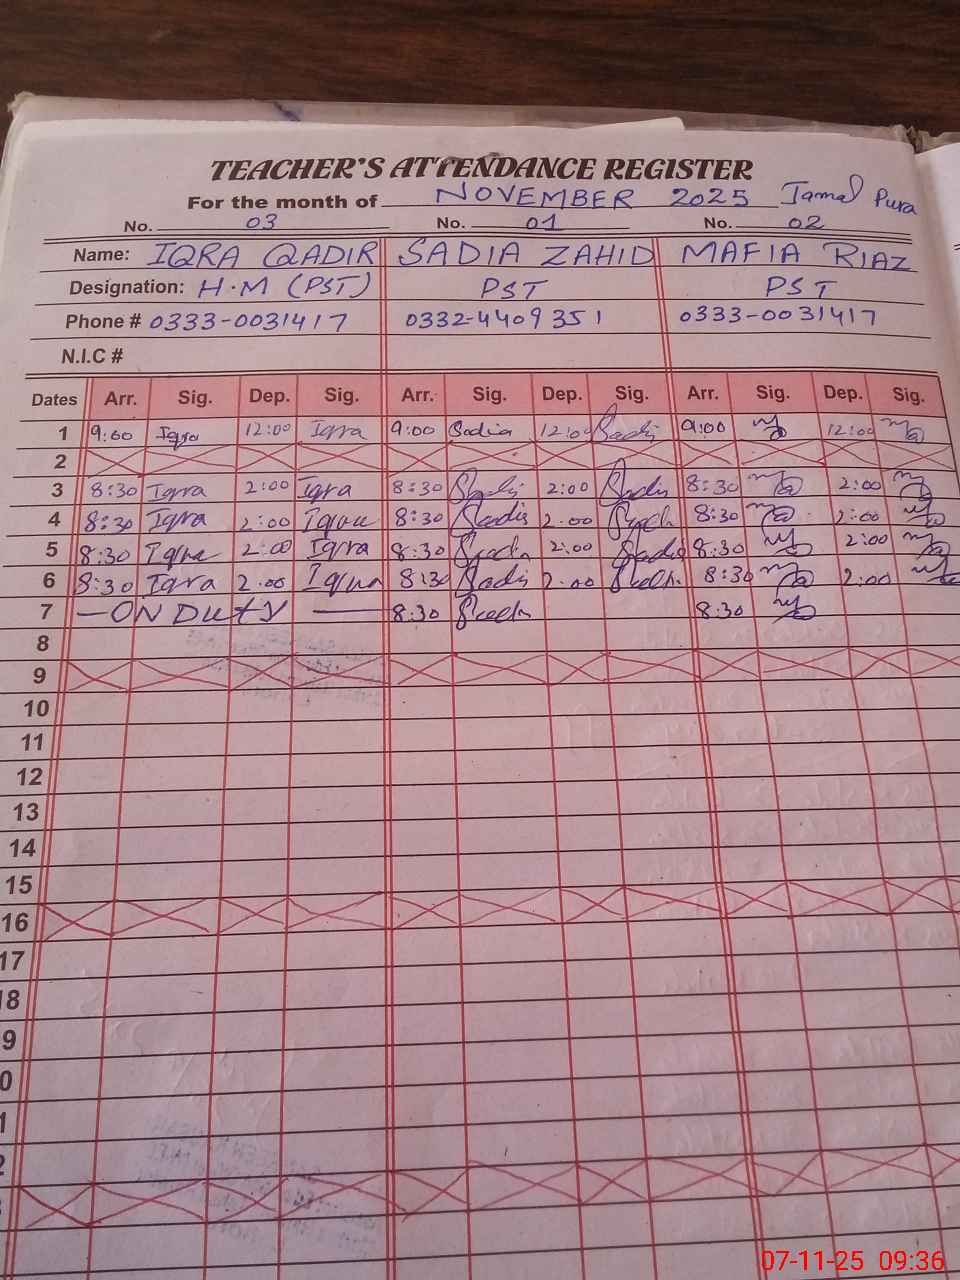 TEACHER'S ATTENDANCE REGISTER
For the month of NOVEMBER 2025 Jamal Pura
No. 03 No. 01 No. 02
Name: IQRA QADIR SADIA ZAHID MAFIA RIAZ
Designation: H.M (PST) PST PST
Phone # 0333-0031417 0332-4409351 0333-0031417
N.I.C #
Dates Arr. Sig. Dep. Sig. Arr. Sig. Dep. Sig. Arr. Sig. Dep. Sig.
1 9:00 Iqra 12:00 Iqra 9:00 Sadia 12:00 Sadia 9:00 12:00
2
3 8:30 Iqra 2:00 Iqra 8:30 2:00 Sadia 8:30 2:00
4 8:30 Iqra 2:00 Iqra 8:30 Sadia 2:00 8:30 2:00
5 8:30 Iqra 2:00 Iqra 8:30 2:00 Sadia 8:30 2:00
6 8:30 Iqra 2:00 Iqra 8:30 Sadia 2:00 8:30 2:00
7 — ON DUTY — 8:30 8:30
8
9
10
11
12
13
14
15
16
17
18
9
0
1
2
07-11-25 09:36